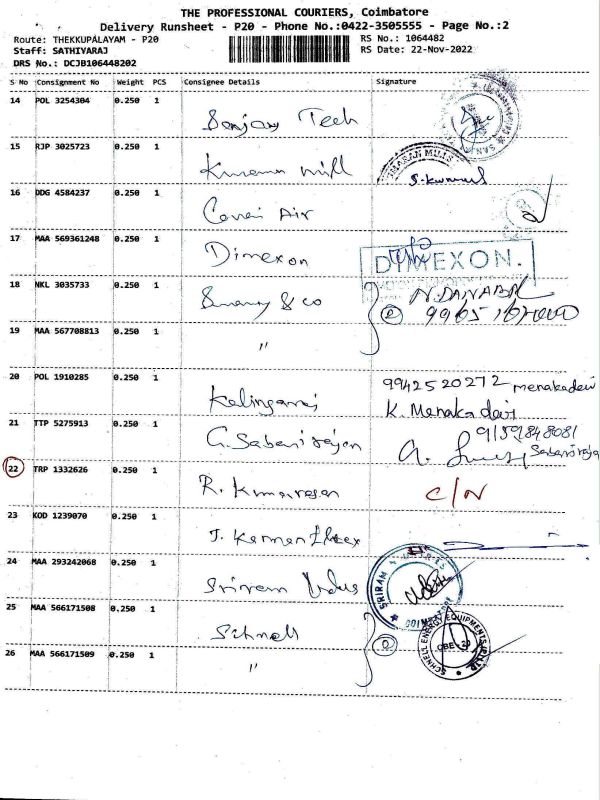 THE PROFESSIONAL COURIERS, Coimbatore
Delivery Runsheet - P20 - Phone No.:0422-3505555 - Page No.:2
Route: THEKKUPALAYAM - P20 RS No.: 1064482
Staff: SATHIVARAJ RS Date: 22-Nov-2022
DRS No.: DCJB106448202
S No Consignment No Weight PCS Consignee Details Signature
14 POL 3254304 0.250 1
Sanjay Tech
15 RJP 3025723 0.250 1
mill MILLS
S. Kumar
16 DDG 4584237 0.250 1
Air
17 MAA 569361248 0.250 1
Dimexon DIMEXON.
18 NKL 3035733 0.250 1
& co ② 99651
19 MAA 567708813 0.250 1
"
20 POL 1910285 0.250 1 9942520272 menakadevi
K. Menakadevi
21 TTP 5275913 0.250 1 9159848081
G. Sabarirajan Sabariraja
22 TRP 1332626 0.250 1
R. Kumaresan C/N
23 KOD 1239070 0.250 1
J.
24 MAA 293242068 0.250 1
Sriram Indus SRIRAM
25 MAA 566171508 0.250 1
Schnell SCHNELL ENERGY EQUIPMENTS (P) LTD
CBE - 29
26 MAA 566171509 0.250 1
" ②